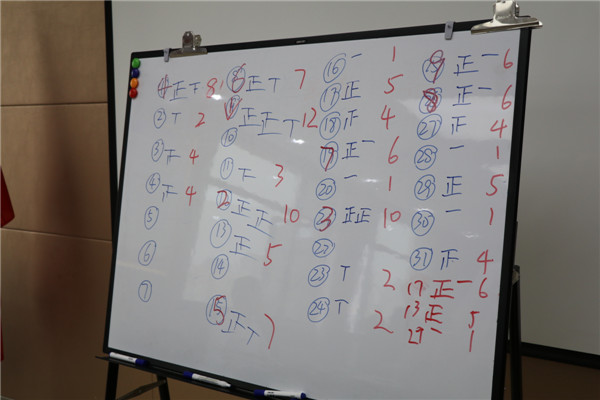 正丅 8
② 丅 2
③ 正 4
④ 正 4
⑤
⑥
⑦
正丅 7
正正丅 12
⑩
⑪ 下 3
正正 10
⑬ 正 5
⑭
⑮ 5 正丅 7
⑯ 一 1
⑰ 正 5
⑱ 正 4
7 正一 6
⑳ 一 1
3 正正 10
㉒
㉓ 丅 2
㉔ 丅 2
9 正一 6
8 正一 6
㉗ 正 4
㉘ 一 1
㉙ 正 5
㉚ 一 1
㉛ 正 4
17 正一 6
13 正 5
29 一 1